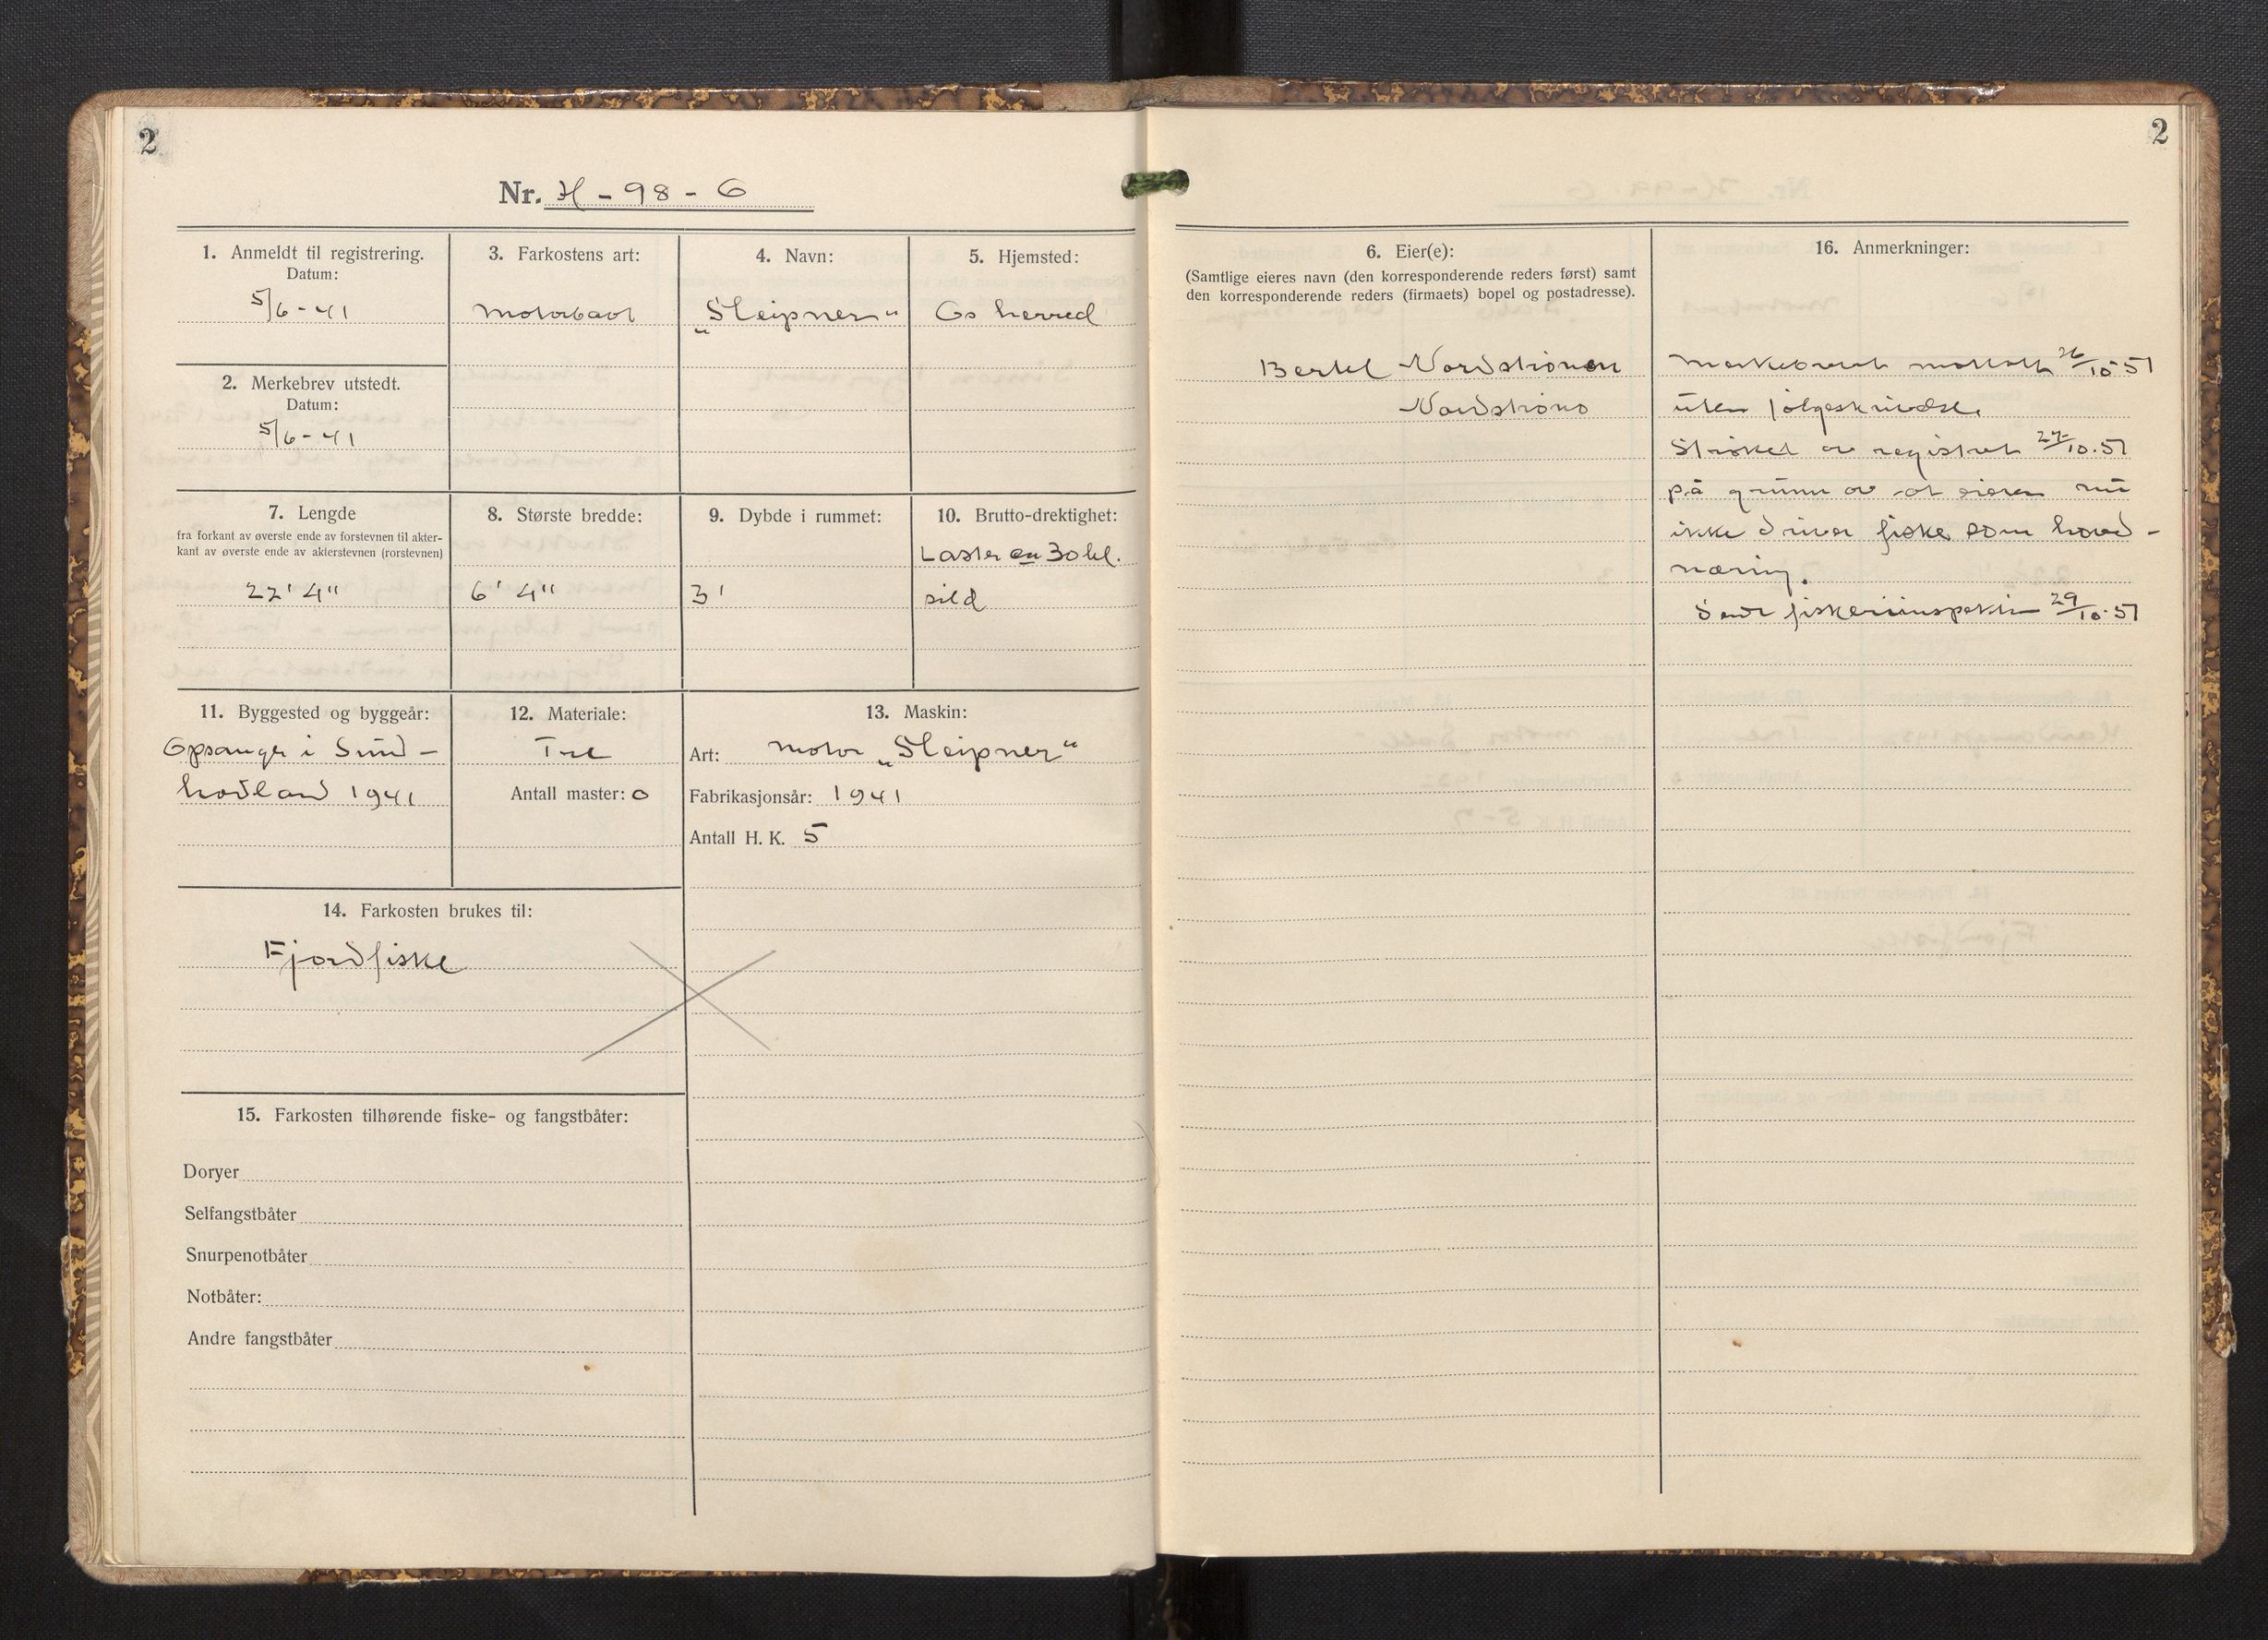 2
Nr. H - 98 - O
1. Anmeldt til registrering.
Datum:
5/6 - 41
2. Merkebrev utstedt.
Datum:
5/6 - 41
3. Farkostens art:
Motorbaat
4. Navn:
„Sleipner"
5. Hjemsted:
Os herred
7. Lengde
fra forkant av øverste ende av forstevnen til akter-
kant av øverste ende av akterstevnen (rorstevnen)
22' 4"
8. Største bredde:
6' 4"
9. Dybde i rummet:
3'
10. Brutto-drektighet:
Laster ca 30 hl.
sild
11. Byggested og byggeår:
Opsanger i Sund-
hordland 1941
12. Materiale:
Tre
Antall master: 0
13. Maskin:
Art: motor „Sleipner"
Fabrikasjonsår: 1941
Antall H. K. 5
14. Farkosten brukes til:
Fjordfiske
15. Farkosten tilhørende fiske- og fangstbåter:
Doryer
Selfangstbåter
Snurpenotbåter
Notbåter:
Andre fangstbåter
2
6. Eier(e):
(Samtlige eieres navn (den korresponderende reders først) samt
den korresponderende reders (firmaets) bopel og postadresse).
Bertel Nordstrønen
Nordstrøno
16. Anmerkninger:
Merkebrevet mottatt 26/10-51
uten følgeskrivelse.
Strøket av registret 27/10.51
på grunn av at eieren nu
ikke driver fiske som hoved-
næring.
Sendt fiskeriinspektør 29/10-51